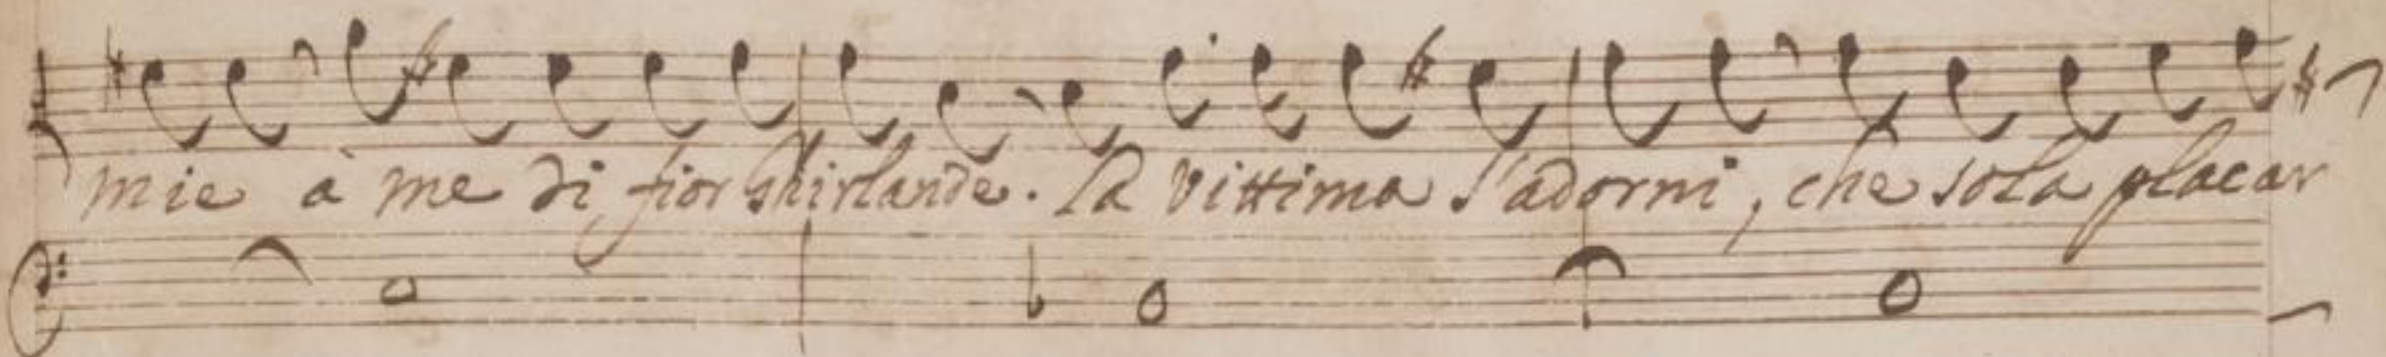 mie à me di fior ghirlande. La vittima s'adorni, che sola placar